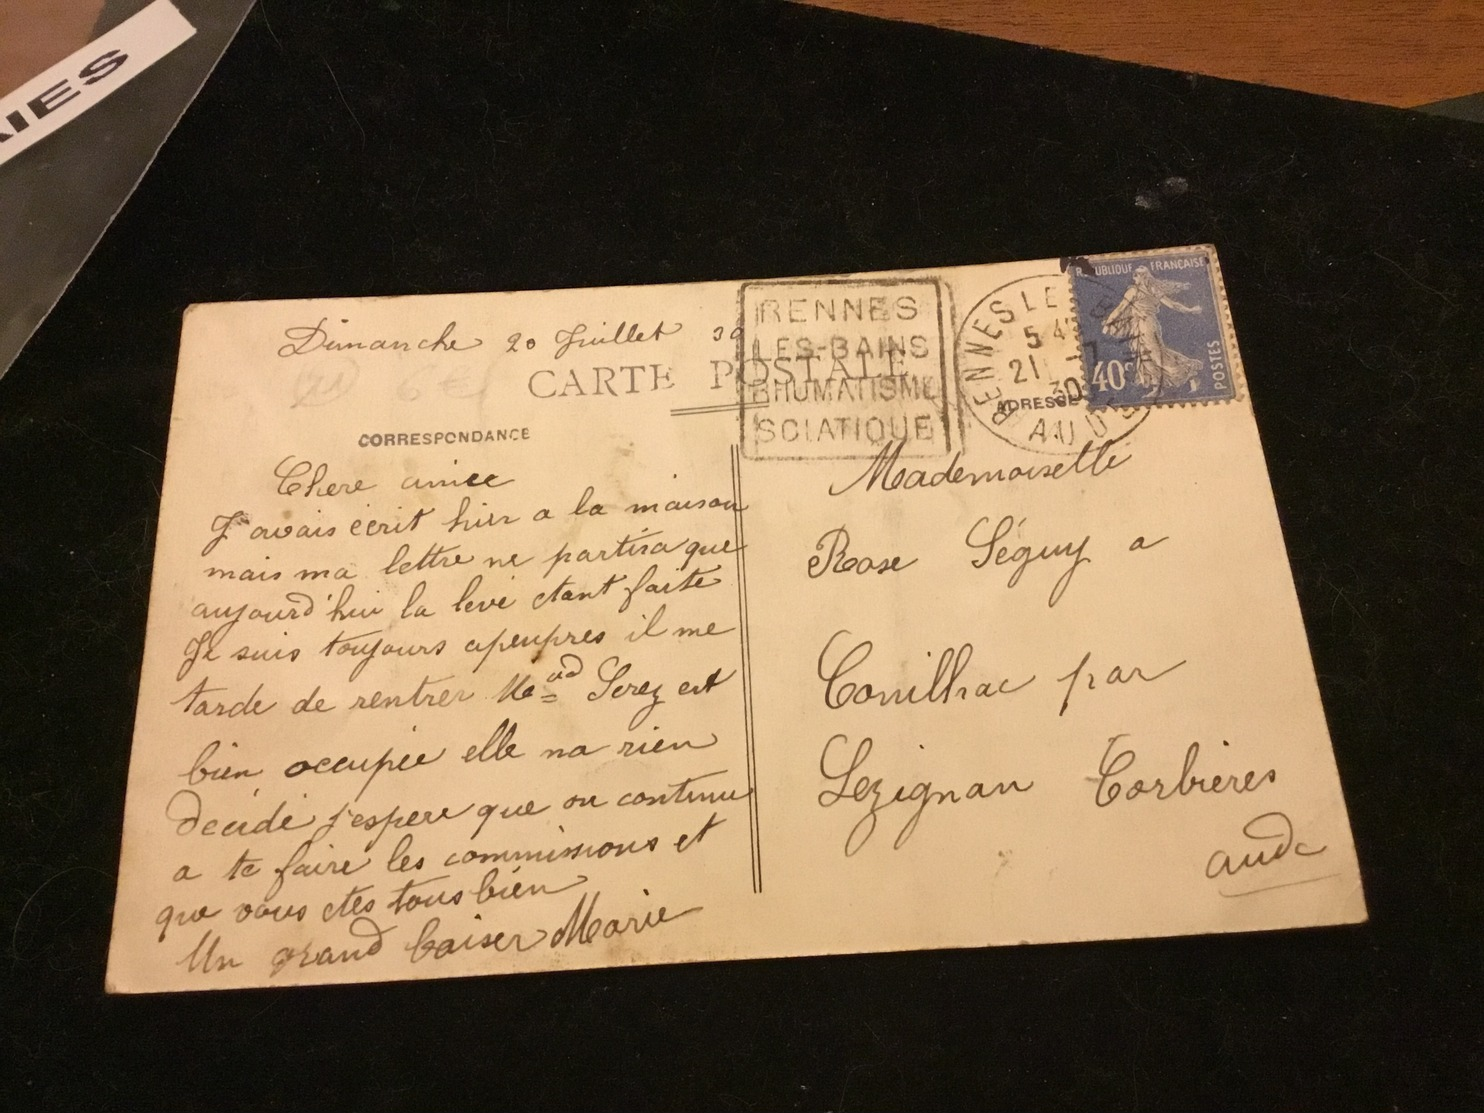 AIES
Dimanche 20 Juillet 30
CARTE POSTALE
CORRESPONDANCE
Chere amiee
J'avais écrit hier a la maison
mais ma lettre ne partira que
aujourd'hui la levé etant faite
Je suis toujours apeupres il me
tarde de rentrer Me Serez est
bien occupée elle na rien
décidé j'espere que on continu
a te faire les commissions et
que vous etes tous bien
Un grand baiser Marie
RENNES
LES-BAINS
RHUMATISME
SCIATIQUE
RENNES LES BAINS
5 4
21 -7
30
AUDE
REPUBLIQUE FRANÇAISE
40c
POSTES
ADRESSE
Mademoiselle
Rose Séguy a
Conilhac par
Lezignan Corbières
aude